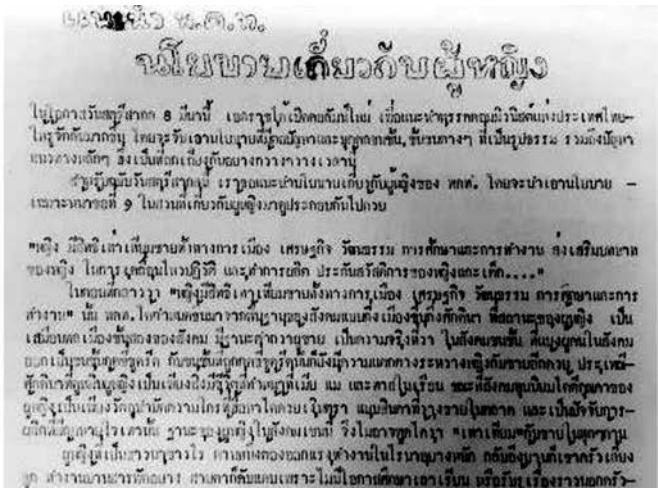 แนะนำ พ.ค.ท.
นโยบายเกี่ยวกับผู้หญิง
ในโอกาสวันสตรีสากล 8 มีนานี้ เอกราชได้เปิดคอลัมน์ใหม่ เพื่อแนะนำพรรคคอมมิวนิสต์แห่งประเทศไทย-
ให้รู้จักกันมากขึ้น โดยจะจับเอานโยบายที่มีต่อปัญหาและบุคคลชนชั้น, ชั้นชนต่างๆ ที่เป็นรูปธรรม รวมถึงปัญหา
แนวทางหลักๆ ซึ่งเป็นที่ถกเถียงกันอย่างกว้างขวางเวลานี้
สำหรับฉบับวันสตรีสากลนี้ เราขอแนะนำนโยบายเกี่ยวกับผู้หญิงของ พคท. โดยจะนำเอานโยบาย -
เฉพาะหน้าข้อที่ 9 ในส่วนที่เกี่ยวกับผู้หญิงมาดูประกอบกันไปด้วย
"หญิง มีสิทธิเท่าเทียมชายทั้งทางการเมือง เศรษฐกิจ วัฒนธรรม การศึกษาและการทำงาน ส่งเสริมบทบาท
ของหญิง ในการเคลื่อนไหวปฏิวัติ และทำการผลิต ประกันสวัสดิการของหญิงและเด็ก...."
ในตอนที่กล่าวว่า "หญิงมีสิทธิเท่าเทียมชายทั้งทางการเมือง เศรษฐกิจ วัฒนธรรม การศึกษาและการ
ทำงาน" นั้น พคท.ได้กำหนดขึ้นมาจากพื้นฐานของสังคมแบบกึ่งเมืองขึ้นกึ่งศักดินา ที่สถานะของผู้หญิง เป็น
เสมือนพลเมืองชั้นสองของสังคม มีฐานะต่ำกว่าชาย เป็นความจริงที่ว่า ในสังคมชนชั้น ที่แบ่งผู้คนในสังคม
ออกเป็นชนชั้นกดขี่ขูดรีด กับชนชั้นที่ถูกกดขี่ขูดรีดนั้นก็ยังมีความแตกต่างระหว่างหญิงกับชายอีกด้วย ประเพณี-
ศักดินา ผู้หญิงเป็นเพียง แม่ และทาสในเรือน ขณะที่สังคมทุนนิยม คุณค่าของ
ผู้หญิงเป็นเพียงวัตถุบำบัดความใคร่ที่ซื้อหาได้ด้วยเงินตรา แบบสินค้าที่วางขายในตลาด และเป็นปัจจัยการ-
ผลิต เท่านั้น ฐานะของผู้หญิงในสังคมเช่นนี้ จึงไม่อาจพูดได้ว่า "เท่าเทียม"กับชายในทุกๆด้าน
ผู้หญิงที่เป็นชาวนา ต้องออกแรงทำงานในไร่นา กลับถึงบ้านก็เข้าครัวเลี้ยง
ลูก ทำงานบ้านสารพัดอย่าง เพราะไม่มีโอกาสศึกษาเล่าเรียน หรือรับรู้เรื่องราวนอกครัว-